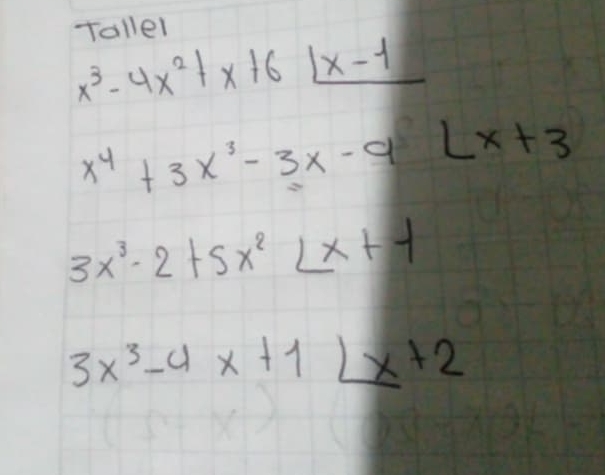 Taller
x³ - 4x² + x + 6 ⌊x - 1
x⁴ + 3x³ - 3x - 9 ⌊x + 3
3x³ - 2 + 5x² ⌊x + 1
3x³ - 4x + 1 ⌊x + 2